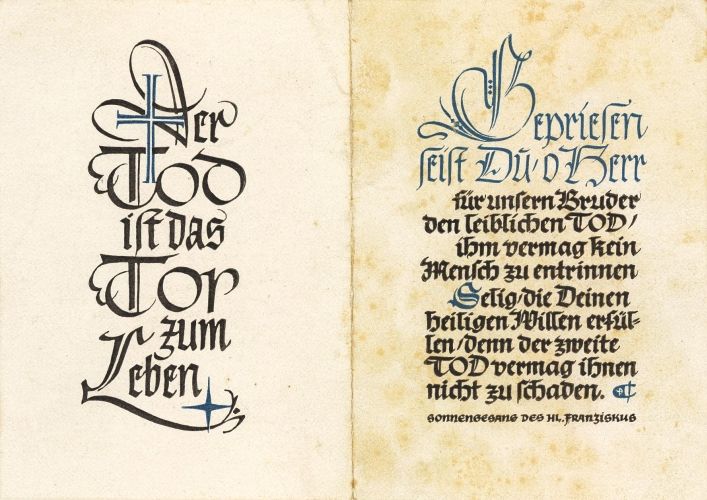 Der
Tod
ist das
Tor
zum
Leben
Gepriesen
seist Dū, o Herr
für unsern Bruder
den leiblichen TOD/
ihm vermag kein
Mensch zu entrinnen
Selig/die Deinen
heiligen Willen erfül-
len/denn der zweite
TOD vermag ihnen
nicht zu schaden.
SONNENGESANG DES HL. FRANZISKUS